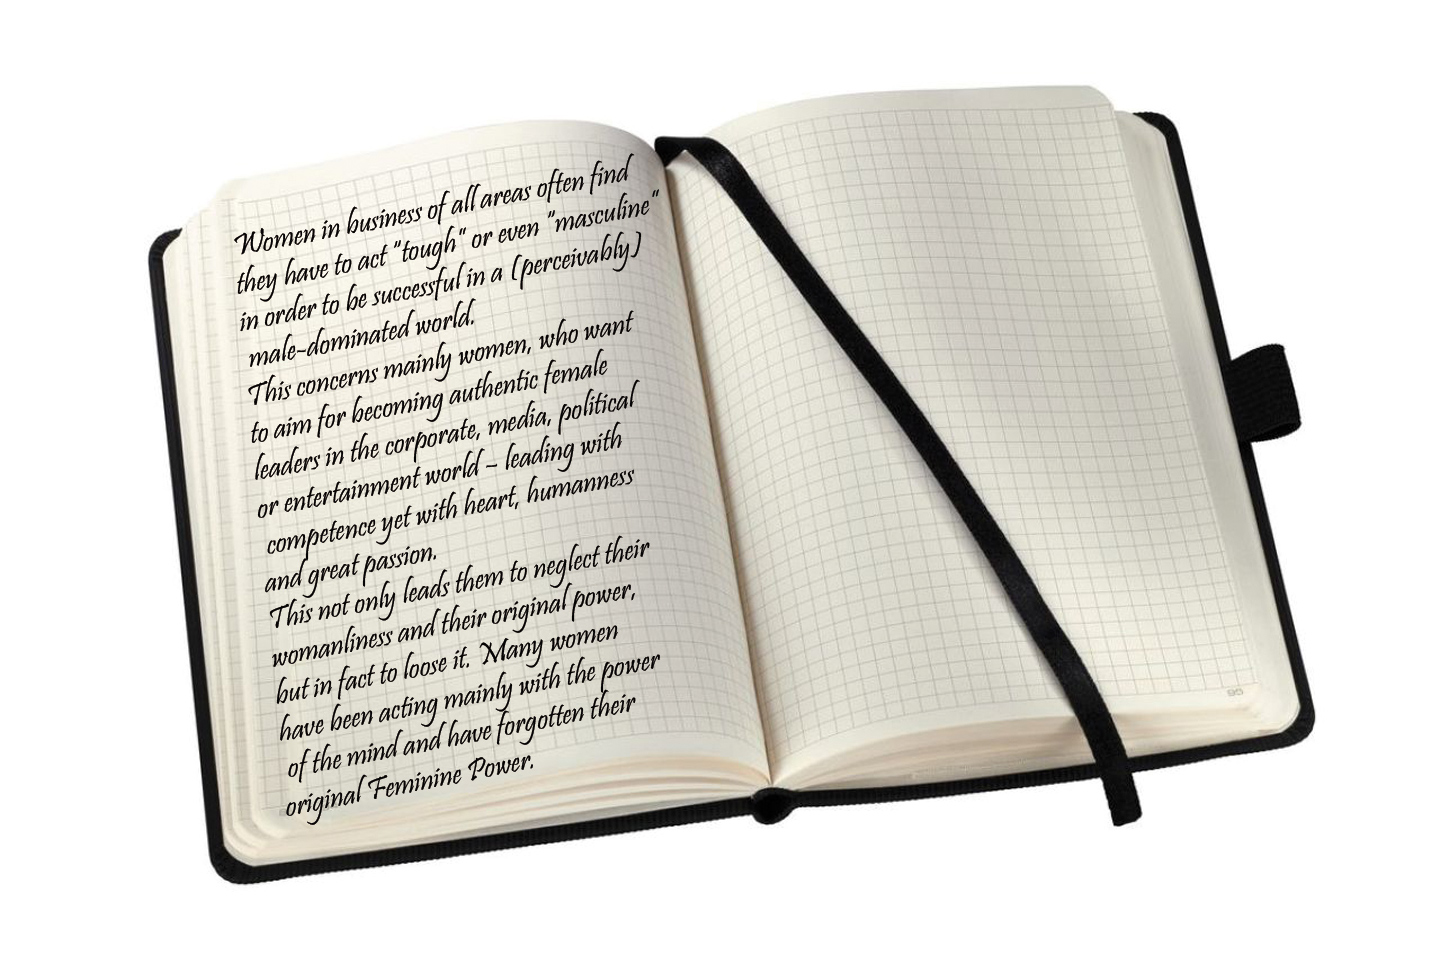 Women in business of all areas often find
they have to act "tough" or even "masculine"
in order to be successful in a (perceivably)
male-dominated world.
This concerns mainly women, who want
to aim for becoming authentic female
leaders in the corporate, media, political
or entertainment world – leading with
competence yet with heart, humanness
and great passion.
This not only leads them to neglect their
womanliness and their original power,
but in fact to loose it. Many women
have been acting mainly with the power
of the mind and have forgotten their
original Feminine Power.